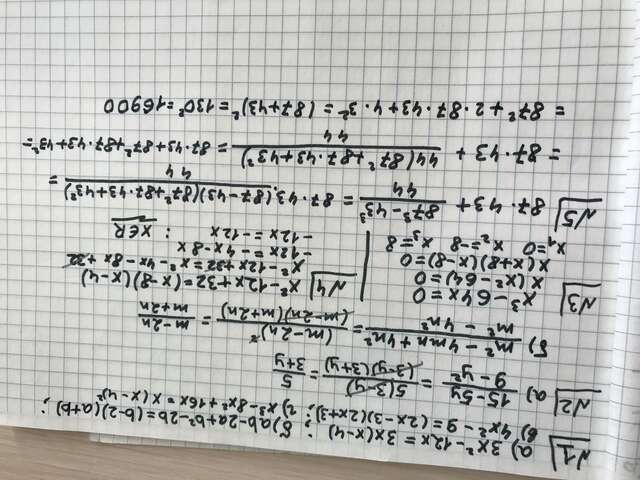 №1 а) 3x²-12x = 3x(x-4) ; б) ab-2a+b²-2b = (b-2)(a+b)
в) 4x²-9 = (2x-3)(2x+3) ; г) x³-8x²+16x = x(x-4)²
№2 а) (15-5y)/(9-y²) = 5(3-y)/((3-y)(3+y)) = 5/(3+y)
б) (m²-4mn+4n²)/(m²-4n²) = (m-2n)²/((m-2n)(m+2n)) = (m-2n)/(m+2n)
№3 x³-64x=0
x(x²-64)=0
x(x+8)(x-8)=0
x₁=0 x₂=-8 x₃=8
№4 x²-12x+32=(x-8)(x-4)
x²-12x+32=x²-4x-8x+32
-12x=-4x-8x
-12x=-12x ; x∈R
№5 87·43 + (87³-43³)/44 = 87·43 + (87-43)(87²+87·43+43²)/44 =
= 87·43 + 44(87²+87·43+43²)/44 = 87·43+87²+87·43+43² =
= 87²+2·87·43+4·3² = (87+43)² = 130² = 16900